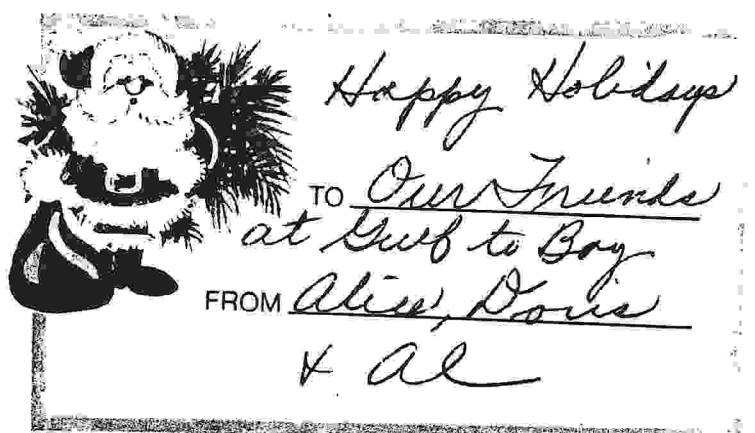 Happy Holidays
TO Our Friends
at Gulf to Bay
FROM Alice, Doris
& Al